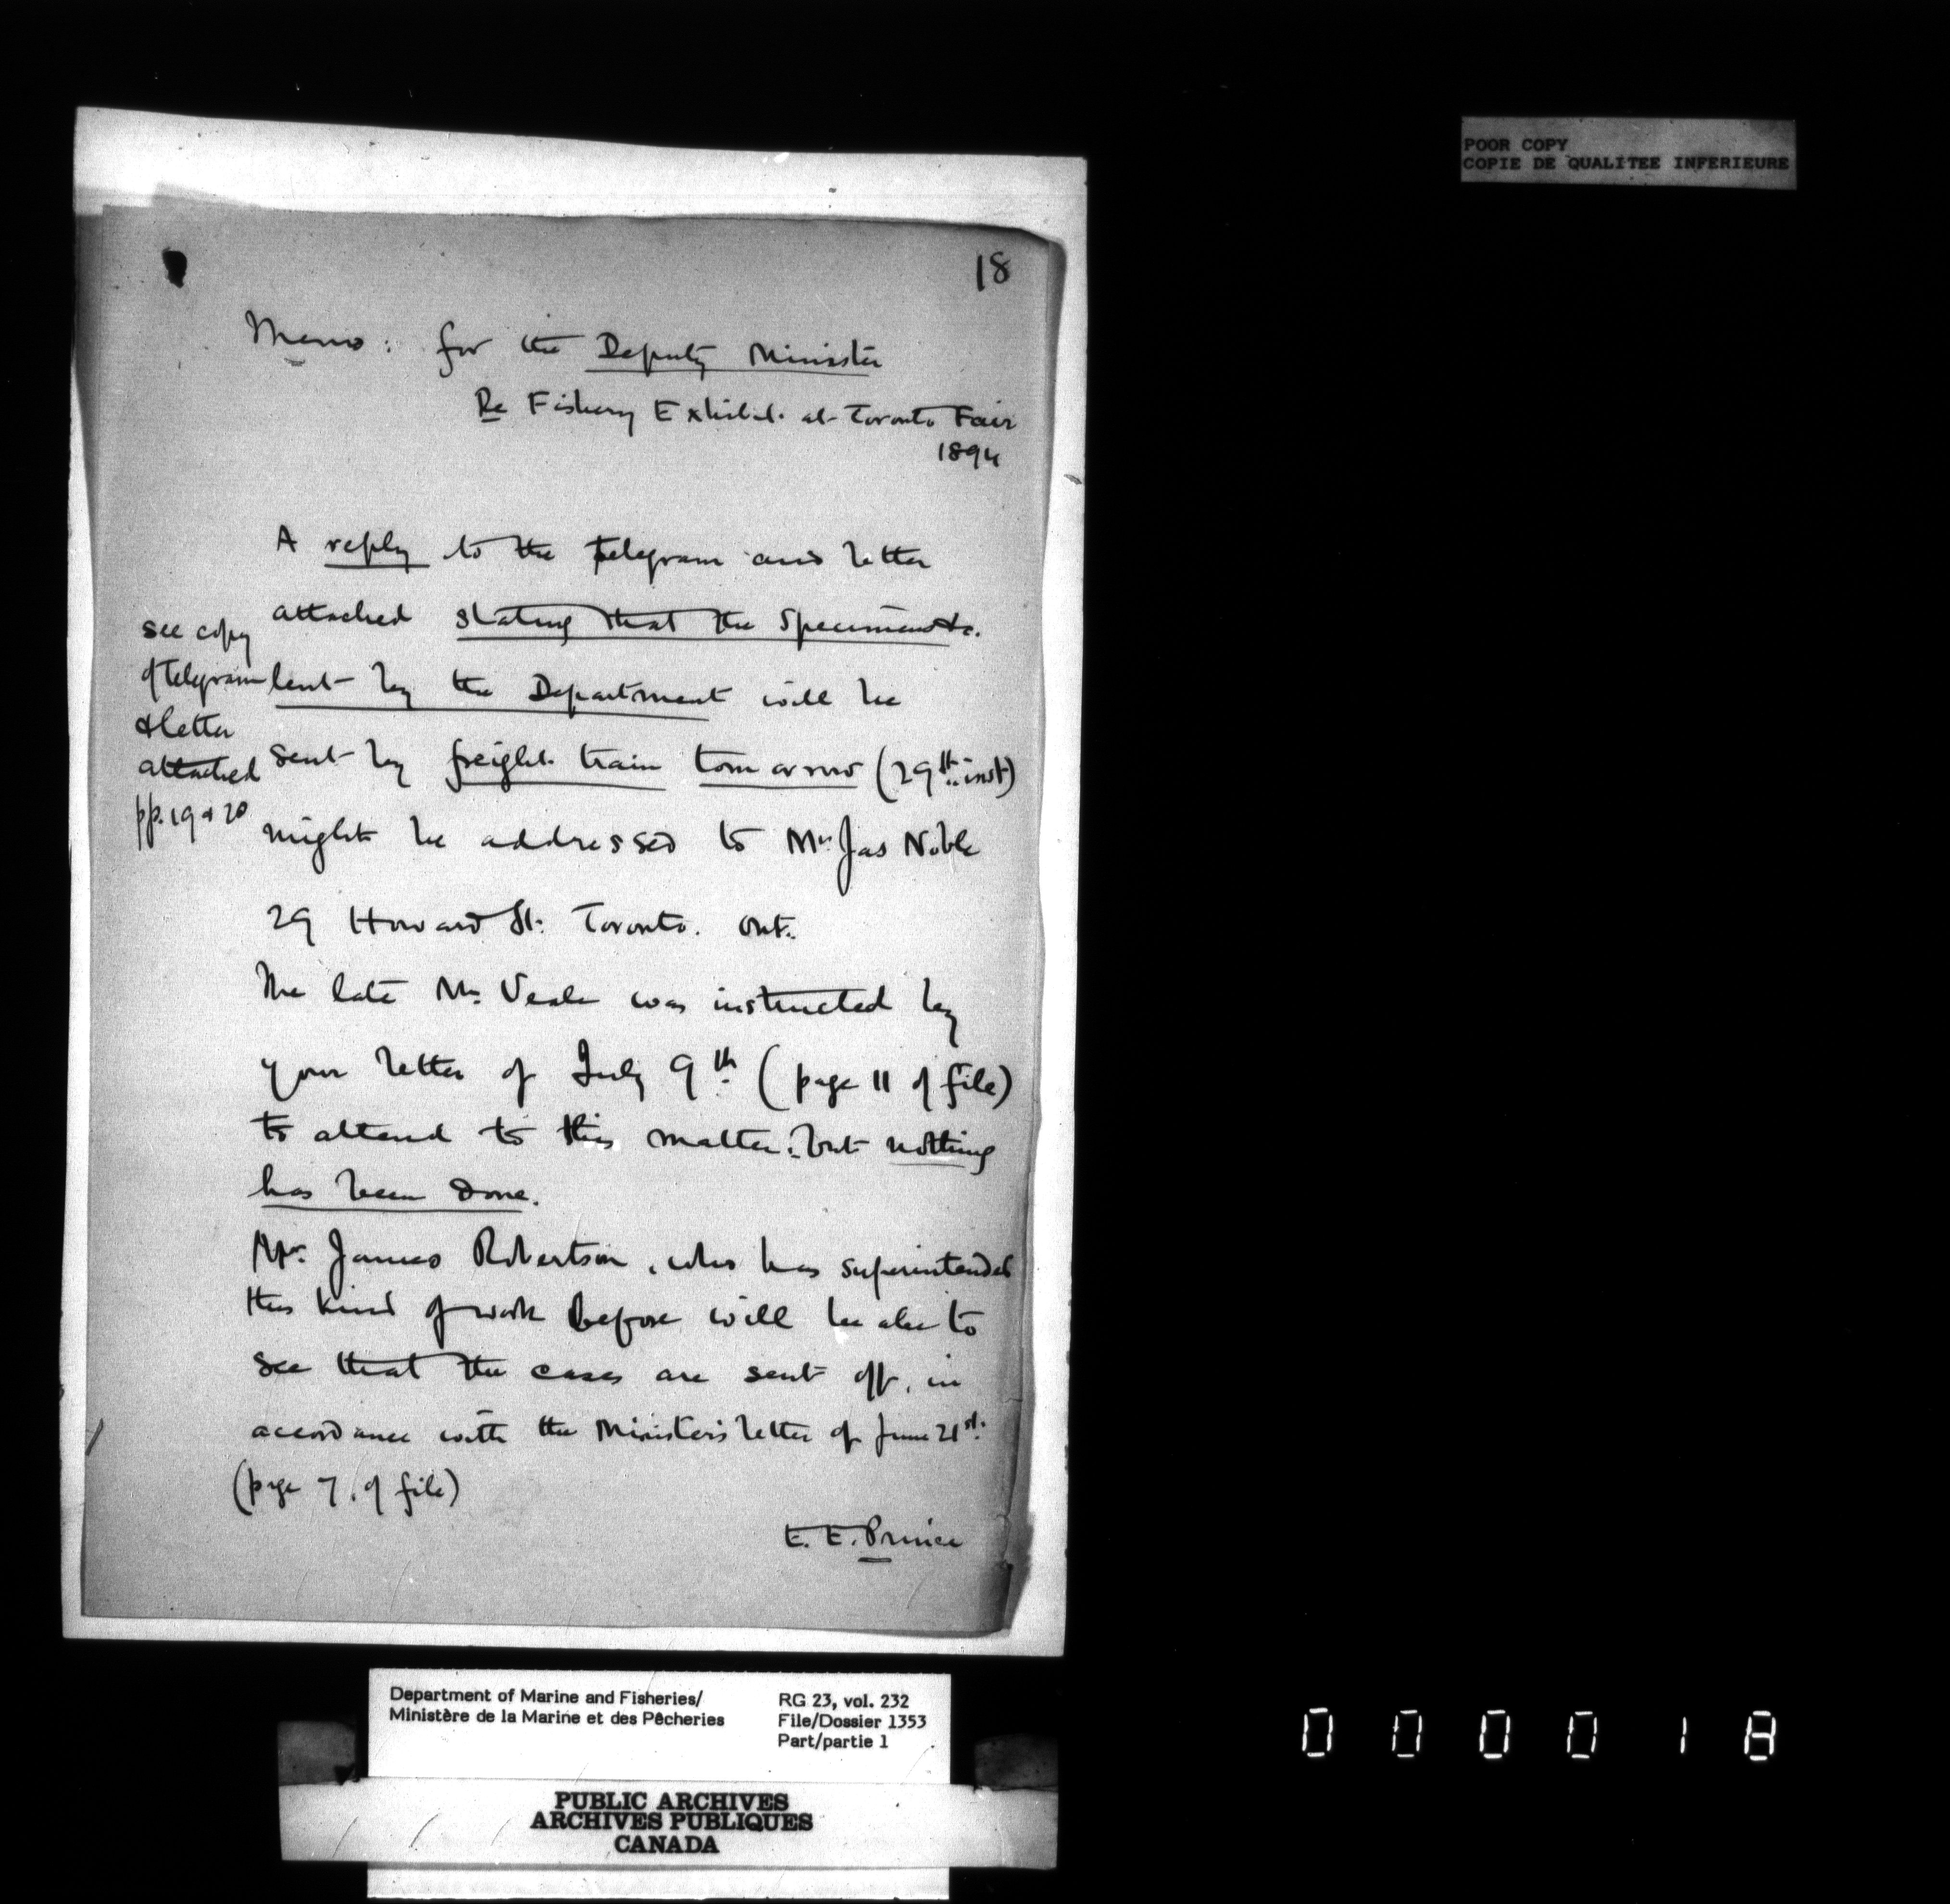 POOR COPY
COPIE DE QUALITEE INFERIEURE
18
Memo: for the Deputy Minister
Re Fishery Exhibit. at Toronto Fair
1894
A reply to the telegram and letter
attached stating that the specimens &c.
lent by the Department will be
sent by freight train tomorrow (29th inst)
might be addressed to Mr Jas Noble
29 Howard St. Toronto. Ont.
see copy
of telegram
& letter
attached
pp. 19 & 20
The late Mr. Veale was instructed by
your letter of July 9th (page 11 of file)
to attend to this matter. but nothing
has been done.
Mr. James Robertson, who has superintended
this kind of work before will be able to
see that the cases are sent off, in
accordance with the Minister's letter of June 21st.
(page 7. of file)
E. E. Prince
Department of Marine and Fisheries/
Ministère de la Marine et des Pêcheries
RG 23, vol. 232
File/Dossier 1353
Part/partie 1
PUBLIC ARCHIVES
ARCHIVES PUBLIQUES
CANADA
000018